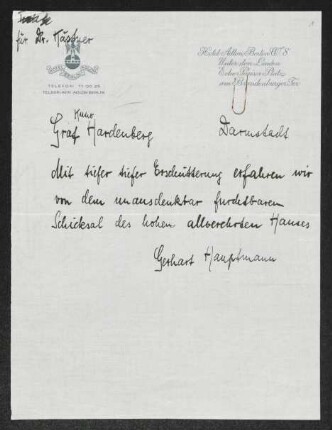 für Dr. Kästner
TELEFON 11 00 26
Hotel Adlon, Berlin W 8
Unter den Linden
Ecke Pariser Platz
am Brandenburger Tor
Kuno
Graf Hardenberg Darmstadt
Mit tiefer tiefer Erschütterung erfahren wir
von dem unausdenkbar furchtbaren
Schicksal des hohen allverehrten Hauses
Gerhart Hauptmann